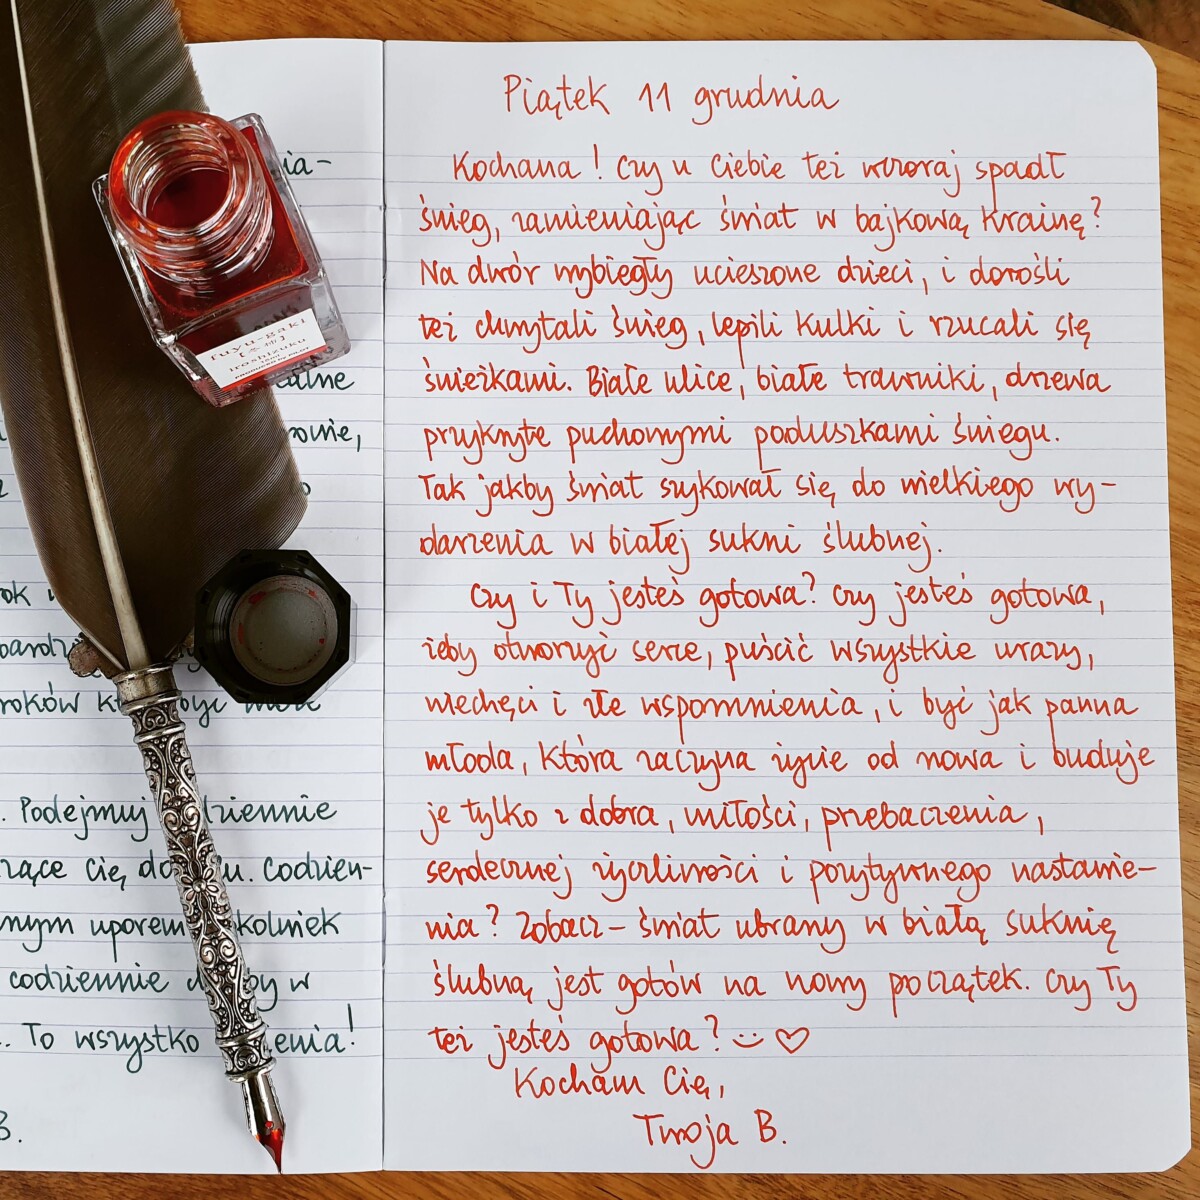 ia-
ealne
rowie,
rok
bardz
roków k być
. Podejmuj dziennie
czące Cię do u. Codzien-
nym uporem kolwiek
codziennie by w
. To wszystko enia!
B.
fuyu-gaki
[冬柿]
iroshizuku
15ml
PRODUCED BY PILOT
Piątek 11 grudnia
Kochana! Czy u Ciebie też wczoraj spadł
śnieg, zamieniając świat w bajkową krainę?
Na dwór wybiegły ucieszone dzieci, i dorośli
też chwytali śnieg, lepili kulki i rzucali się
śnieżkami. Białe ulice, białe trawniki, drzewa
przykryte puchowymi poduszkami śniegu.
Tak jakby świat szykował się do wielkiego wy-
darzenia w białej sukni ślubnej.
Czy i Ty jesteś gotowa? Czy jesteś gotowa,
żeby otworzyć serce, puścić wszystkie urazy,
niechęci i złe wspomnienia, i być jak panna
młoda, która zaczyna życie od nowa i buduje
je tylko z dobra, miłości, przebaczenia,
serdecznej życzliwości i pozytywnego nastawie-
nia? Zobacz – świat ubrany w białą suknię
ślubną jest gotów na nowy początek. Czy Ty
też jesteś gotowa? :) ♡
Kocham Cię,
Twoja B.